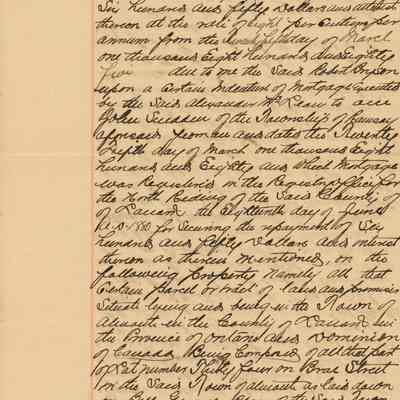 Six hundred and fifty Dollars and interest
thereon at the rate of eight per centum per
annum from the twenty fifth day of March
one thousand Eight hundred and Eighty
five due to me the said Robert
upon a certain Indenture of Mortgage Executed
by the said Alexander McLean to one
John of the Township of Ramsay
aforesaid yeoman and dated the Twenty
fifth day of March one thousand Eight
hundred and Eighty and which Mortgage
was Registered in the Registry office for
the North Riding of the said County of
of Lanark the Eighteenth day of June
A.D. 1880 for securing the repayment of Six
hundred and fifty Dollars and interest
thereon as therein mentioned, on the
following property Namely all that
Certain parcel or tract of land and premises
Situate lying and being in the Town of
Almonte in the County of Lanark in
the Province of Ontario and Dominion
of Canada Being Composed of all that part
of Lot number Thirty four on Brae Street
in the said Town of Almonte as laid down